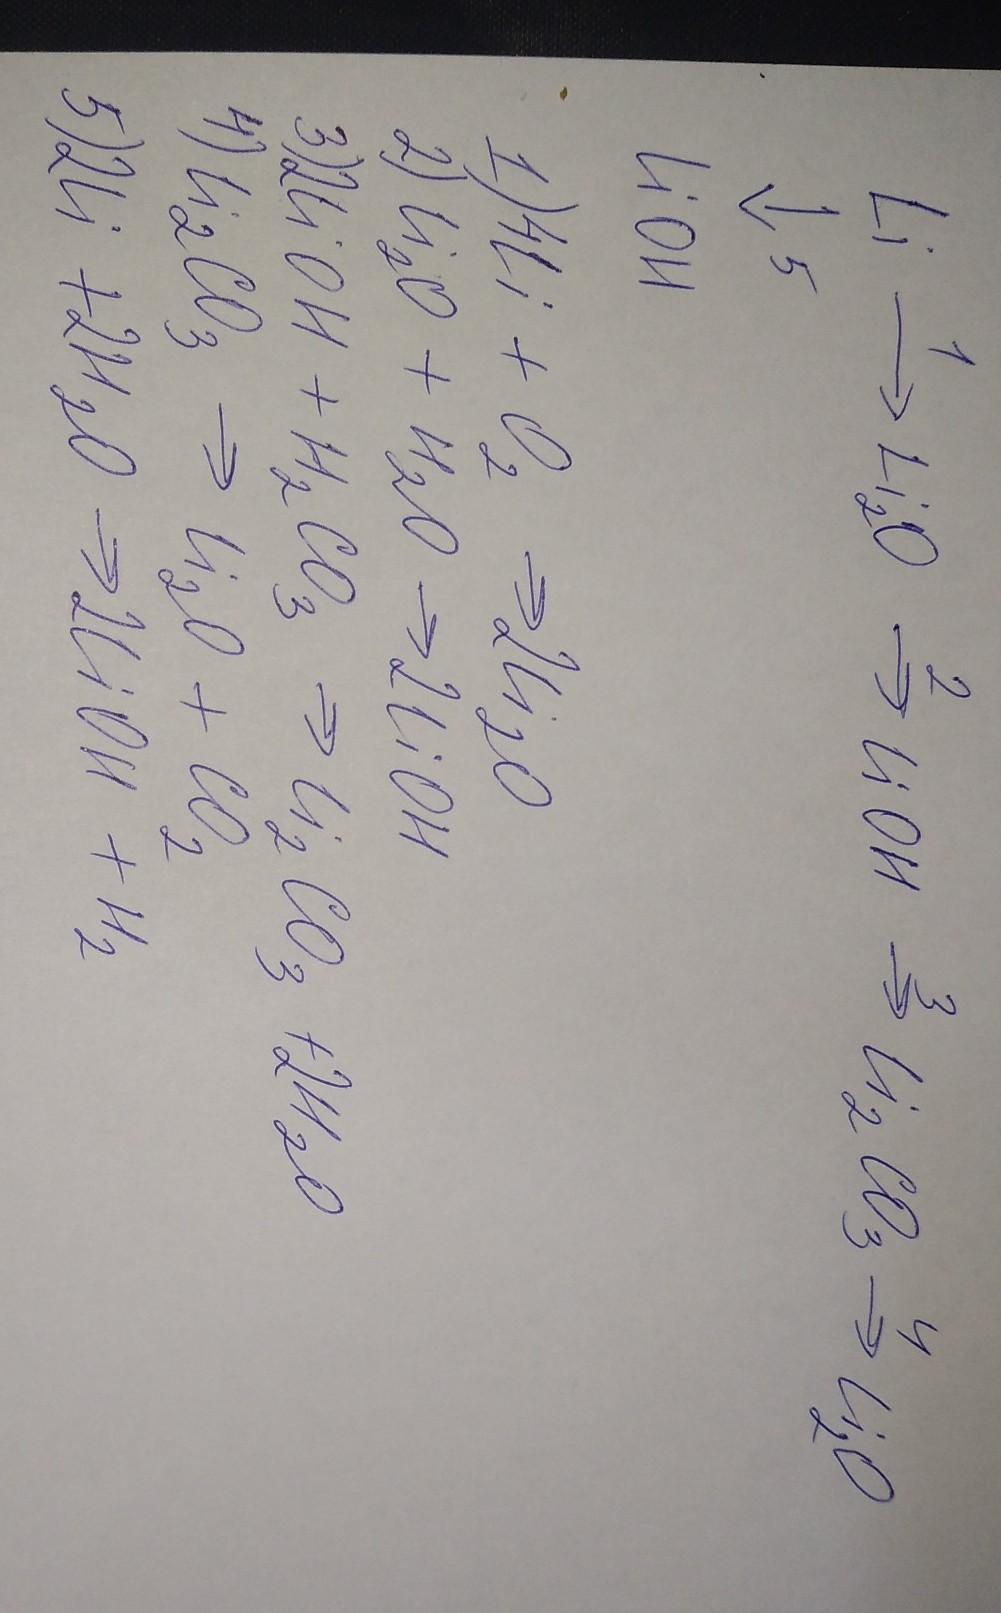 Li →1 Li₂O →2 LiOH →3 Li₂CO₃ →4 Li₂O
↓5
LiOH
1) 4Li + O₂ → 2Li₂O
2) Li₂O + H₂O → 2LiOH
3) 2LiOH + H₂CO₃ → Li₂CO₃ + 2H₂O
4) Li₂CO₃ → Li₂O + CO₂
5) 2Li + 2H₂O → 2LiOH + H₂